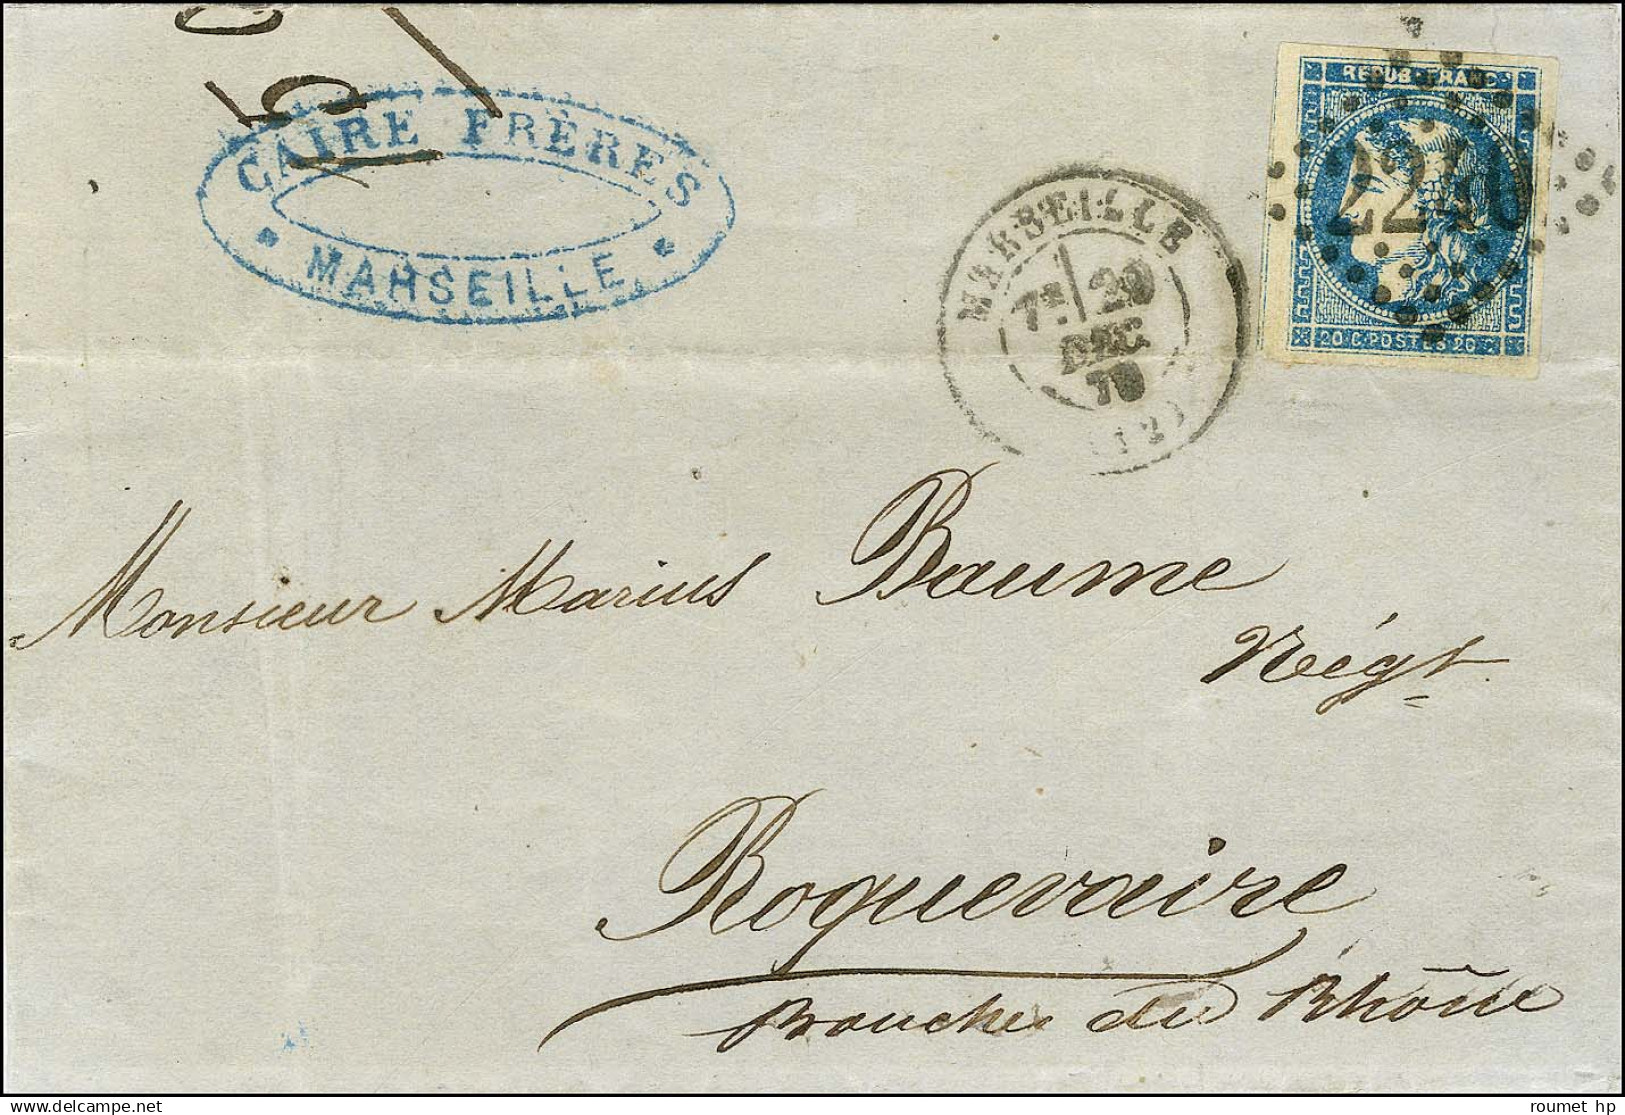 CAIRE FRÈRES
MARSEILLE
MARSEILLE
7E 20
DEC
70
(12)
REPUB·FRANC
2240
20 C·POSTES 20 C
Monsieur Marius Baume
Négt
Roquevaire
Bouches du Rhône
roumet hp